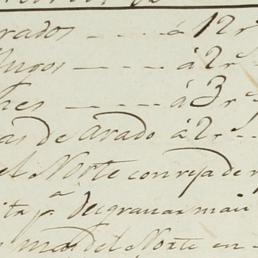 rados - - - - á 12 r^s
Yugos - - - - á 2 r^s
hes - - - - á 3 r^s
as de arado á 2 r^s
el Norte con reja de
ita p^a desgranar mai
mad. del Norte en